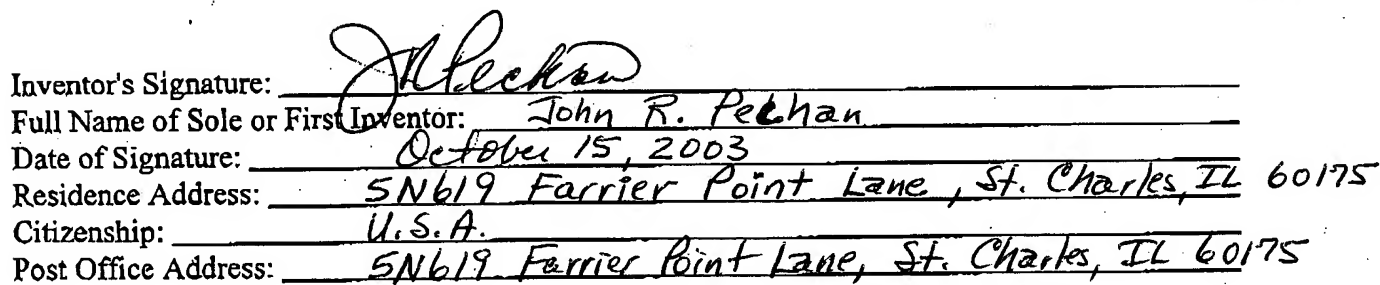 Inventor's Signature: JR Pechan
Full Name of Sole or First Inventor: John R. Pechan
Date of Signature: October 15, 2003
Residence Address: 5N619 Farrier Point Lane, St. Charles, IL 60175
Citizenship: U.S.A.
Post Office Address: 5N619 Farrier Point Lane, St. Charles, IL 60175